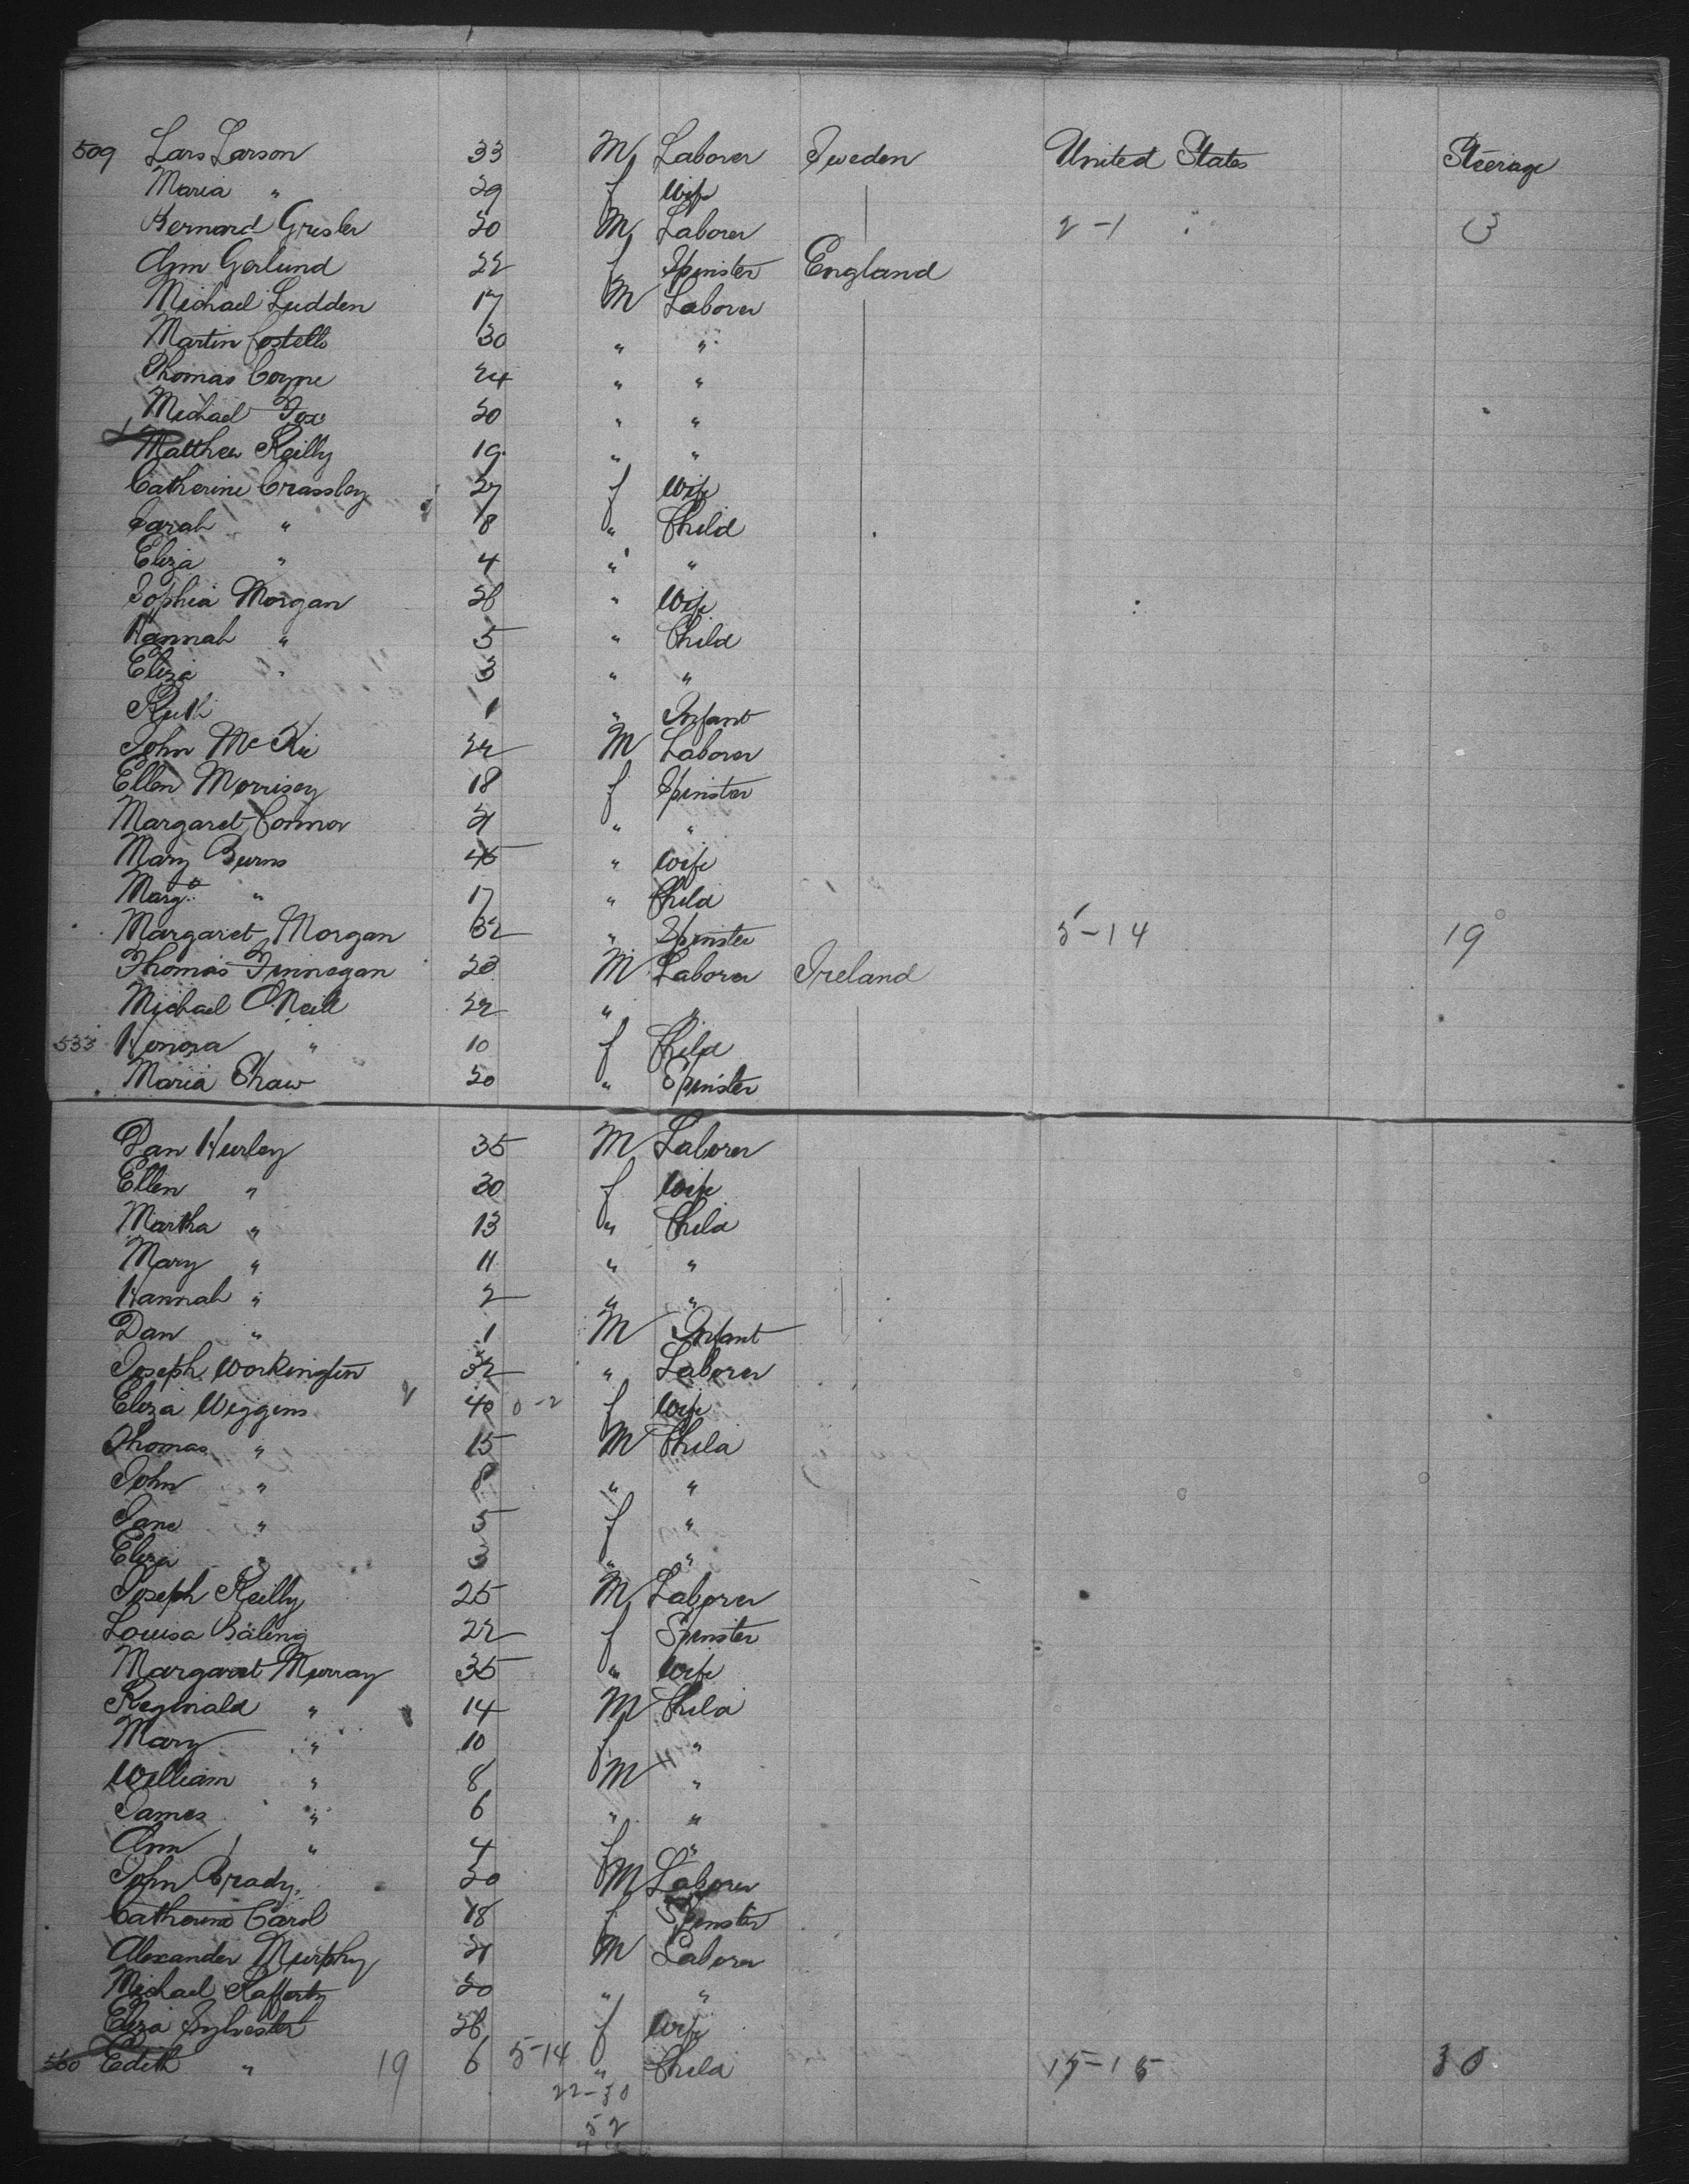 509 Lars Larson 33 M Laborer Sweden United States Steerage
Maria " 29 f Wife
Bernard Grisler 20 M Laborer 2-1 3
Ann Gerlund 22 f Spinster England
Michael Ludden 17 M Laborer
Martin Costello 30 " "
Thomas Coyne 24 " "
Michael Fox 20 " "
Matthew Reilly 19 " "
Catherine Crassley 27 f Wife
Sarah " 8 " Child
Eliza " 4 " "
Sophia Morgan 28 " Wife
Hannah " 5 " Child
Eliza " 3 " "
Ruth 1 " Infant
John McKie 22 M Laborer
Ellen Morrisey 18 f Spinster
Margaret Connor 21 " "
Mary Burns 45 " Wife
Margt " 17 " Child
Margaret Morgan 32 " Spinster 5-14 19
Thomas Finnegan 20 M Laborer Ireland
Michael O'Neill 22 " "
533 Honora " 10 f Child
Maria Shaw 20 " Spinster
Dan Hurley 35 M Laborer
Ellen " 30 f Wife
Martha " 13 " Child
Mary " 11 " "
Hannah " 2 " "
Dan " 1 M Infant
Joseph Workington 32 " Laborer
Eliza Wiggins 40 0-2 f Wife
Thomas " 15 M Child
John " 8 " "
Jane " 5 f "
Eliza " 3 " "
Joseph Reilly 25 M Laborer
Louisa Baling 22 f Spinster
Margaret Murray 35 " Wife
Reginald " 14 M Child
Mary " 10 f "
William " 8 M "
James " 6 " "
Ann " 4 f "
John Brady 20 M Laborer
Catherine Carol 18 f Spinster
Alexander Murphy 21 M Laborer
Michael Rafferty 20 " "
Eliza Sylvester 28 f Wife
560 Edith " 19 6 5-14 " Child 15-15 30
22-30
52